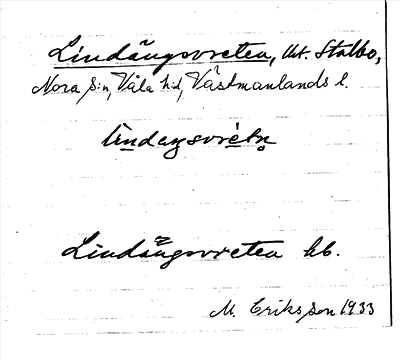 Lindängsvreten, Ut. Stalbo,
Nora s:n, Våla h:d, Västmanlands l.
Lindängsvreten kb.
M. Eriksson 1933